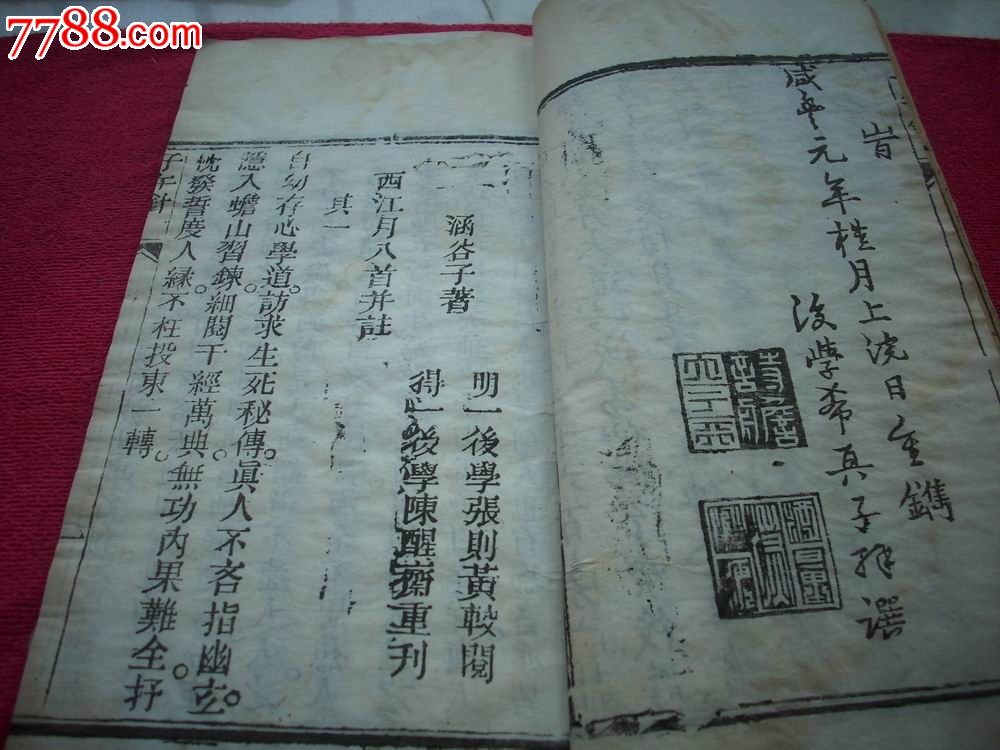 7788.com
旹
咸豐元年桂月上浣日重鐫
後學希真子拜撰
涵谷子著
明一後學張則黃較閱
得一後學陳醒齋重刊
西江月八首并註
其一
自幼存心學道。訪求生死秘傳。眞人不吝指幽玄。
憑入蟾山習鍊。細閱千經萬典。無功內果難全。抒
忱發誓度人緣。不枉投東一轉。
子午針
一